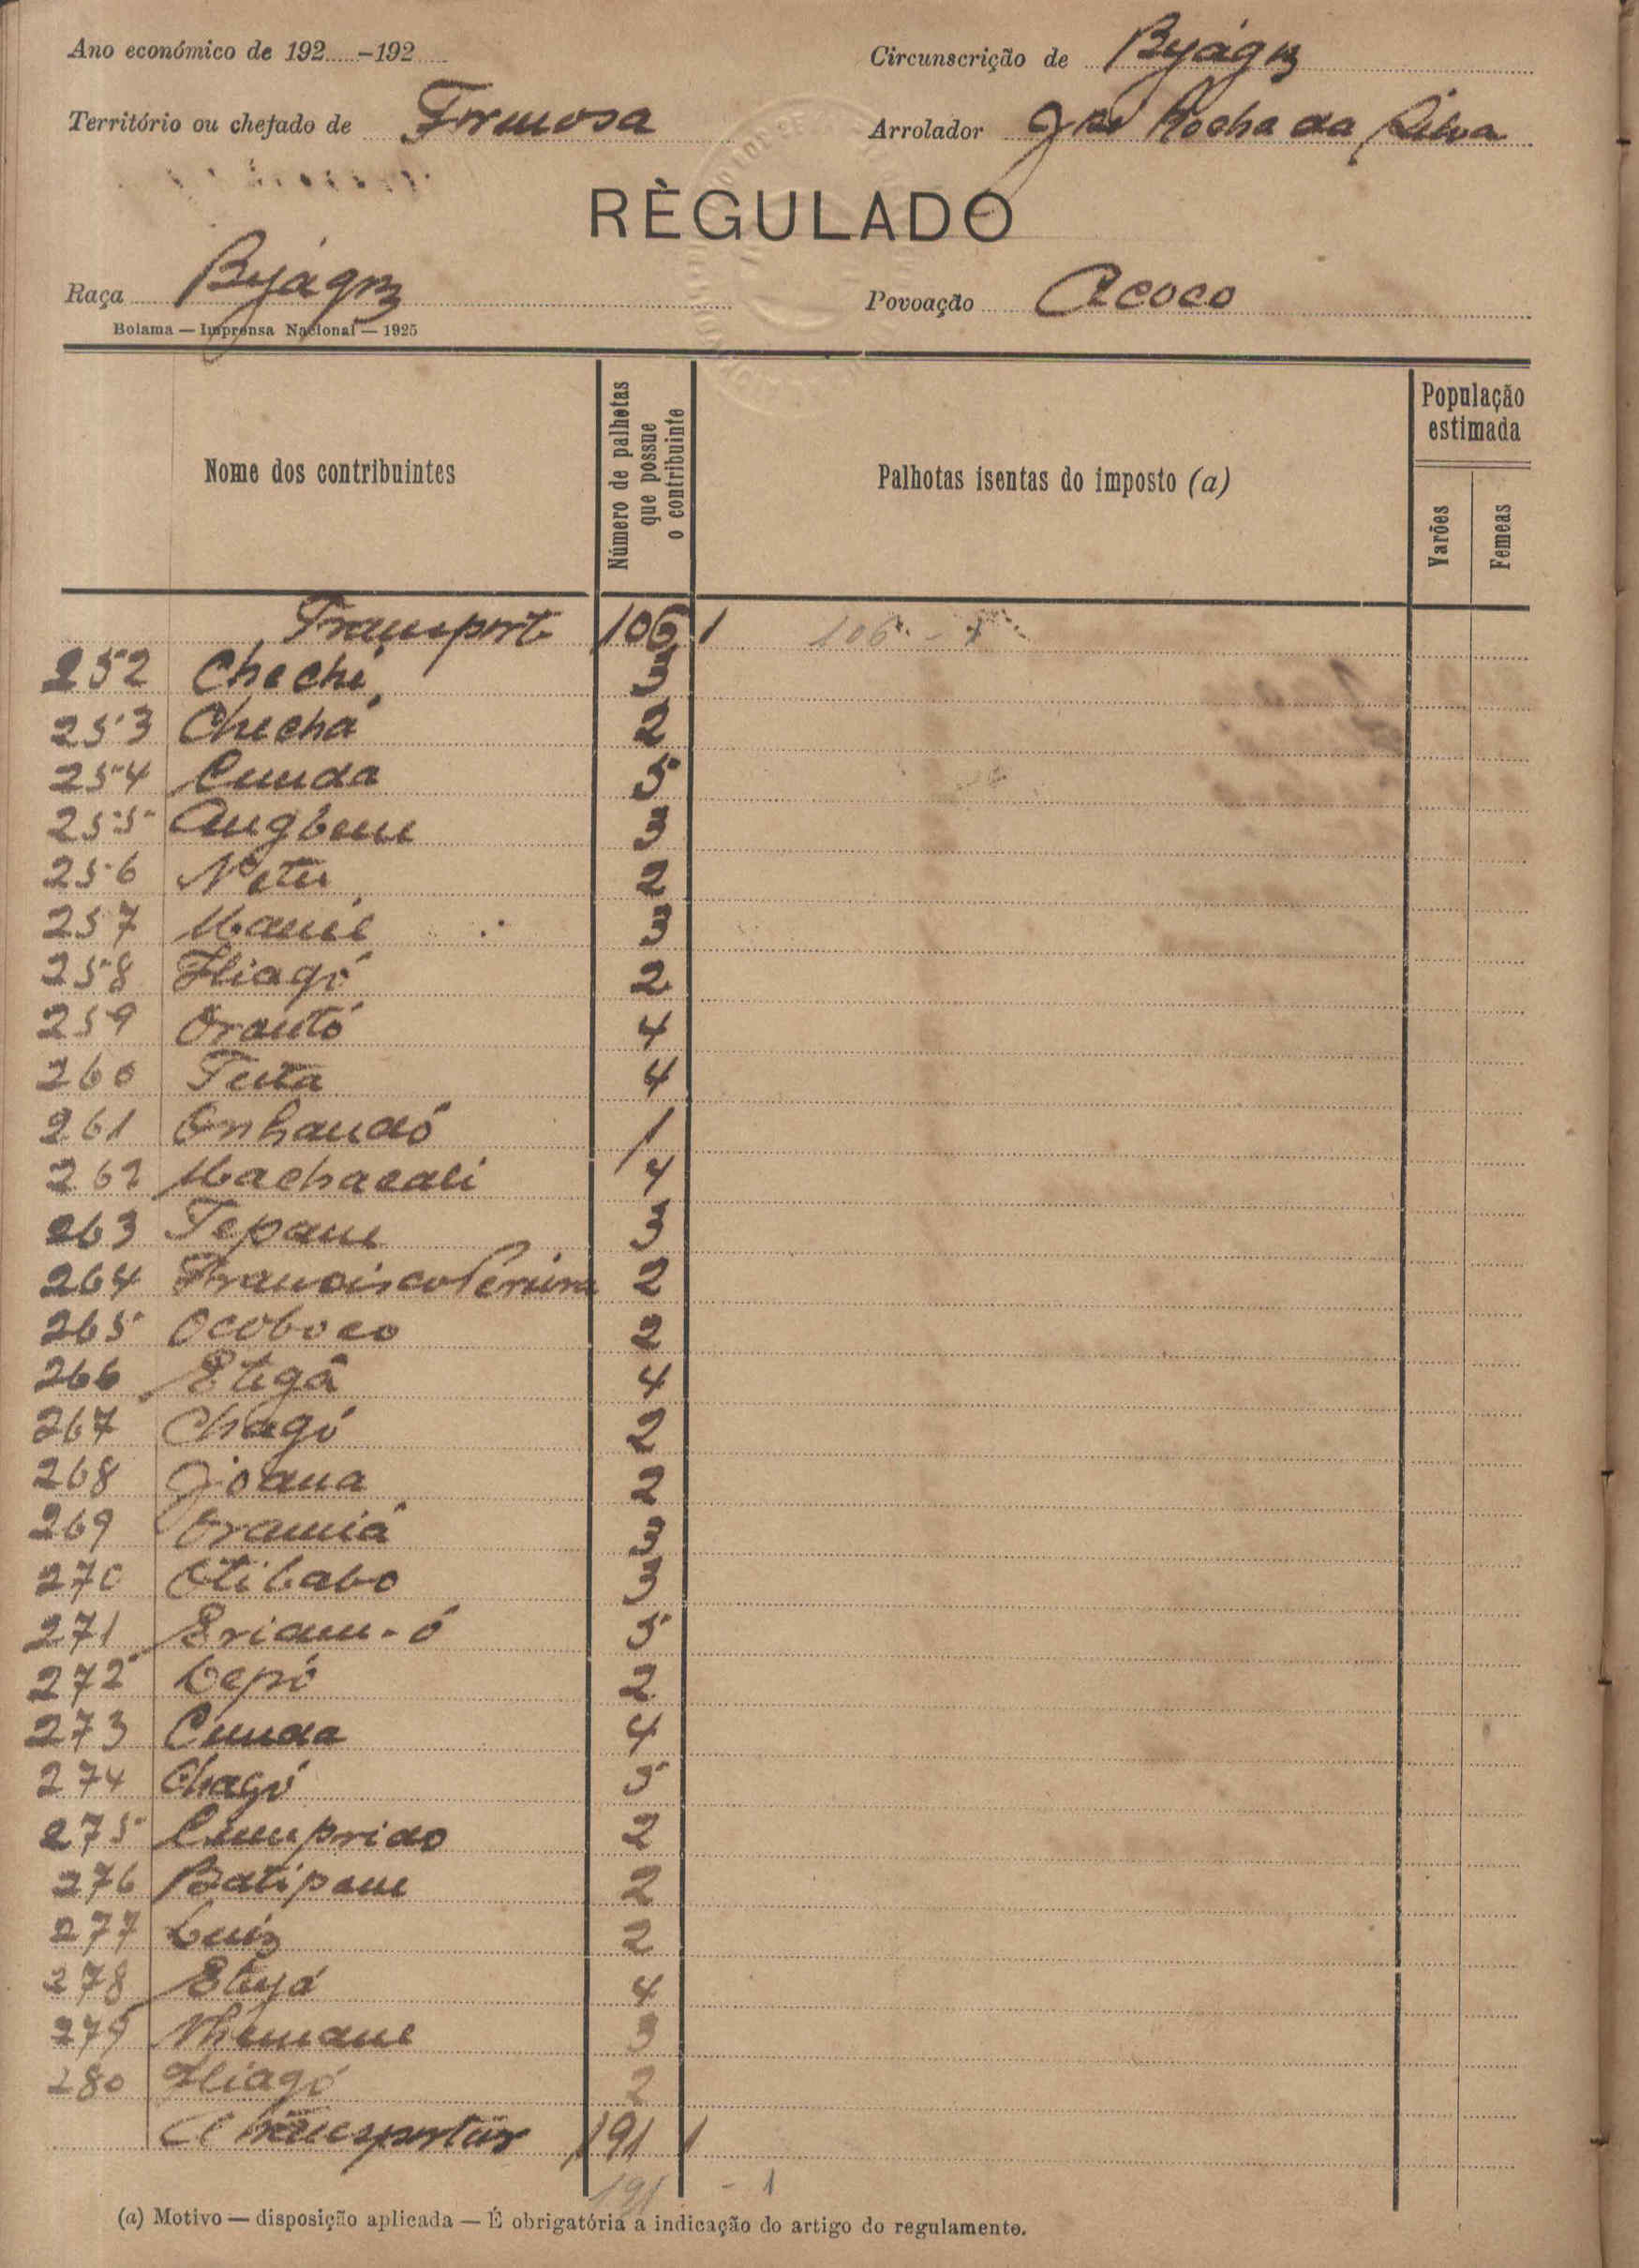 Ano económico de 192.....-192.....
Circunscrição de Byágoz
Território ou chefado de Formosa
Arrolador José Rocha da Silva
RÈGULADO
Raça Byágoz
Povoação Acoco
Bolama — Imprensa Nacional — 1925
Nome dos contribuintes
Número de palhotas que possue o contribuinte
Palhotas isentas do imposto (a)
População estimada
Varões
Femeas
Transporte 106 1 106 - 1
252 Chechi 3
253 Chechá 2
254 Cunda 5
255 3
256 Netu 2
257 3
258 Iliagó 2
259 Orantó 4
260 4
261 Onhandó 1
262 Machacali 4
263 Tepane 3
264 Francisco Pereira 2
265 Ocoboco 2
266 Etegá 4
267 Chagó 2
268 Joana 2
269 Oramiá 3
270 Otibabo 3
271 5
272 Lepó 2
273 Cunda 4
274 Chagó 5
275 Cumprido 2
276 Batipane 2
277 Luiz 2
278 4
279 Nhemane 3
280 Iliagó 2
A transportar 191 1
191 - 1
(a) Motivo — disposição aplicada — É obrigatória a indicação do artigo do regulamento.